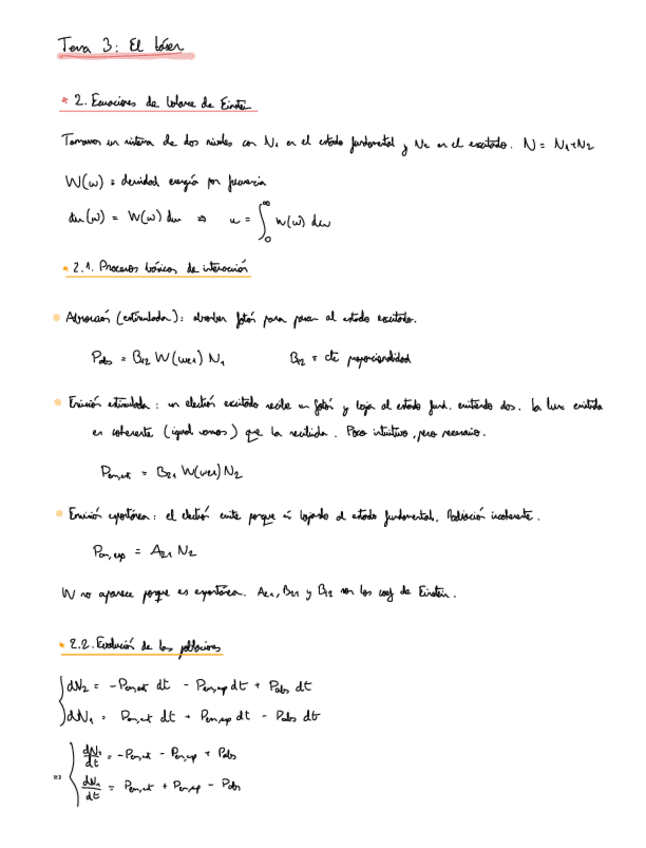 Tema 3: El láser
* 2. Ecuaciones de balance de Einstein
Tomamos un sistema de dos niveles con N₁ en el estado fundamental y N₂ en el excitado. N = N₁+N₂
W(ω) ≡ densidad energía por frecuencia
du(ω) = W(ω) dω ⇒ u = ∫₀^∞ W(ω) dω
* 2.1. Procesos básicos de interacción
• Absorción (estimulada): absorben fotón para pasar al estado excitado.
P_abs = B₁₂ W(ω₂₁) N₁ B₁₂ = cte proporcionalidad
• Emisión estimulada: un electrón excitado recibe un fotón y baja al estado fund. emitiendo dos. La luz emitida
es coherente (igual) que la recibida. Poco intuitivo, pero necesario.
P_em,est = B₂₁ W(ω₂₁) N₂
• Emisión espontánea: el electrón emite porque sí bajando al estado fundamental. Radiación incoherente.
P_em,esp = A₂₁ N₂
W no aparece porque es espontánea. A₂₁, B₂₁ y B₁₂ son los coef de Einstein.
* 2.2. Evolución de las poblaciones
{ dN₂ = -P_em,est dt - P_em,esp dt + P_abs dt
dN₁ = P_em,est dt + P_em,esp dt - P_abs dt
⇒ { dN₂/dt = -P_em,est - P_em,esp + P_abs
dN₁/dt = P_em,est + P_em,esp - P_abs